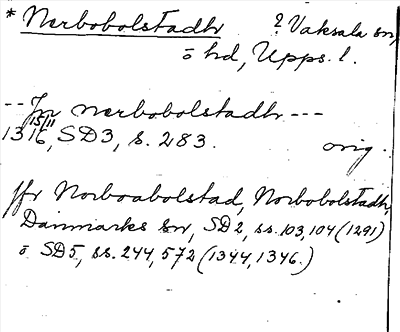 * Nerbobolstadhr ? Vaksala sn,
ō hd, Upps. l.
-- Jn nerbobolstadhr ---
15/11
1316, SD3, s. 283. orig.
jfr Norboabolstad, Norbobolstadhr,
Danmarks sn, SD2, ss. 103, 104 (1291)
ō SD5, ss. 244, 572 (1344, 1346.)